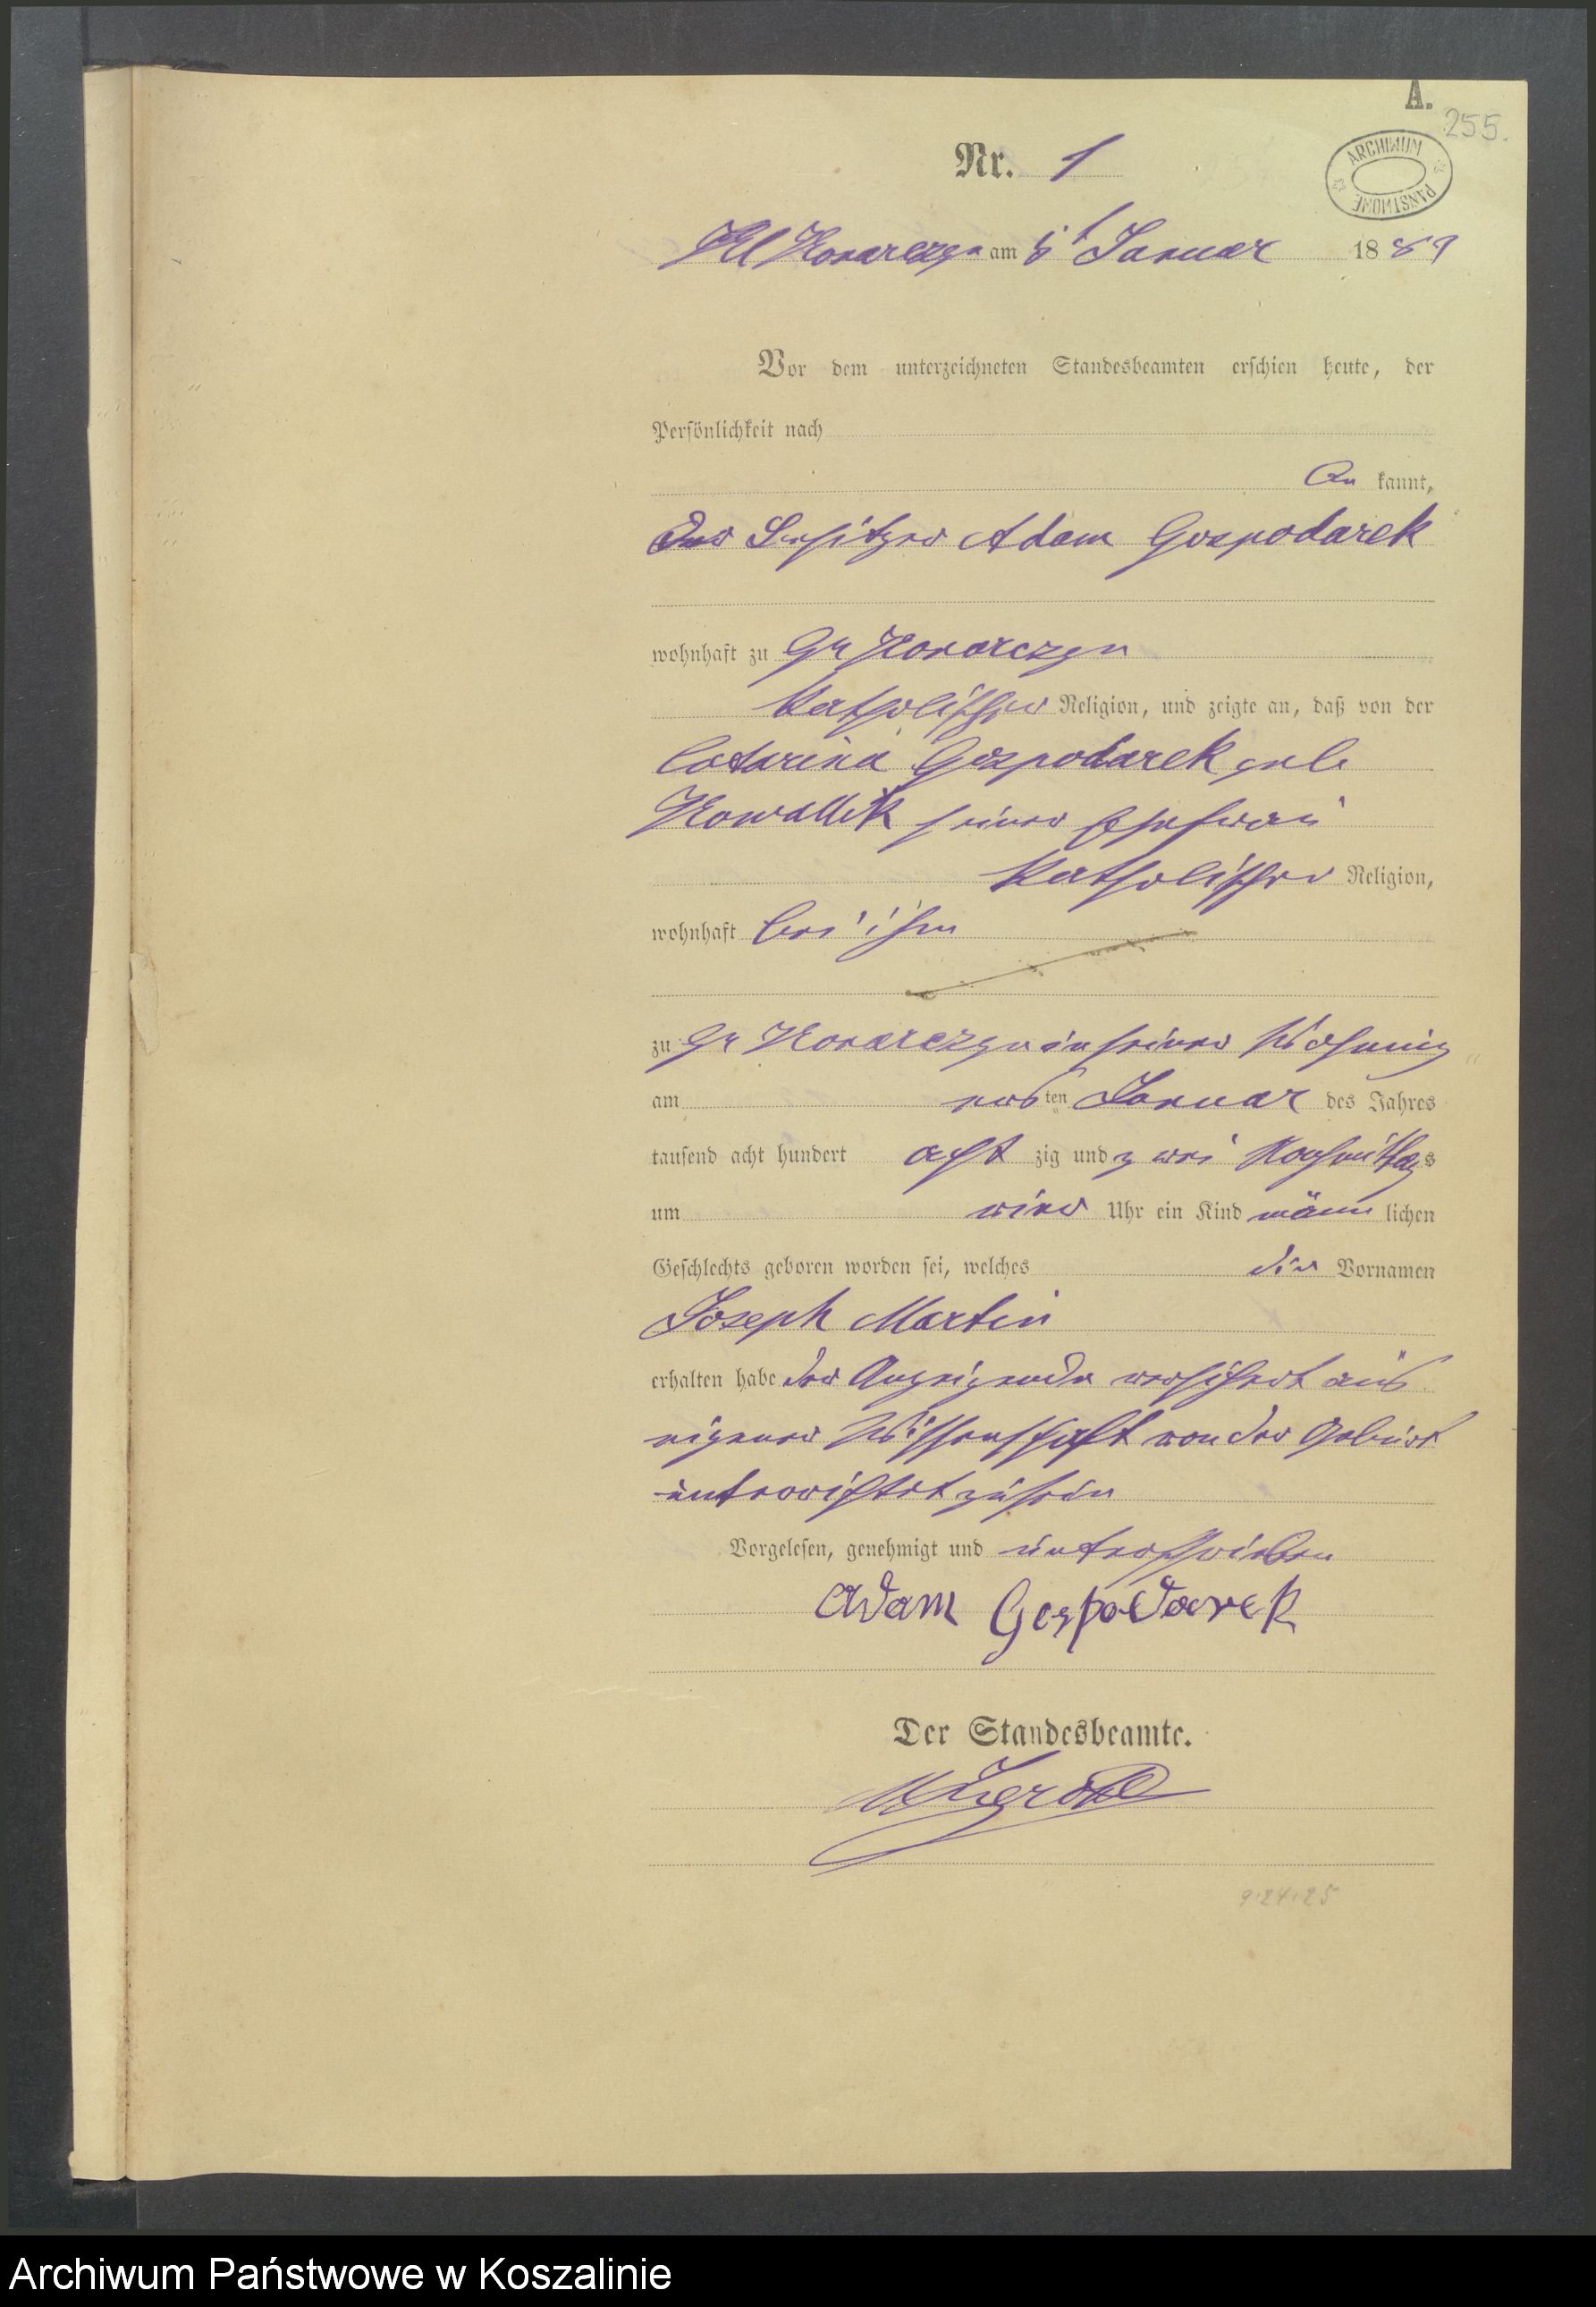 A.
255.
Nr. 1
ARCHIWUM PAŃSTWOWE
Kl Konarczyn am 5t Januar 1889
Vor dem unterzeichneten Standesbeamten erschien heute, der
Persönlichkeit nach
be kannt,
Der Besitzer Adam Gospodarek
wohnhaft zu Gr Konarczyn
katholischer Religion, und zeigte an, daß von der
Catarina Gospodarek geb
Kowallik seiner Ehefrau
katholischer Religion,
wohnhaft bei ihm
zu Gr Konarczyn in seiner Wohnung
am ersten Januar des Jahres
tausend acht hundert acht zig und Nachmittags
um vier Uhr ein Kind männlichen
Geschlechts geboren worden sei, welches die Vornamen
Joseph Martin
erhalten habe der Anzeigende versichert aus
eigener Wissenschaft von der Geburt
unterrichtet zu sein
Vorgelesen, genehmigt und unterschrieben
Adam Gospodarek
Der Standesbeamte.
9.24.25
Archiwum Państwowe w Koszalinie